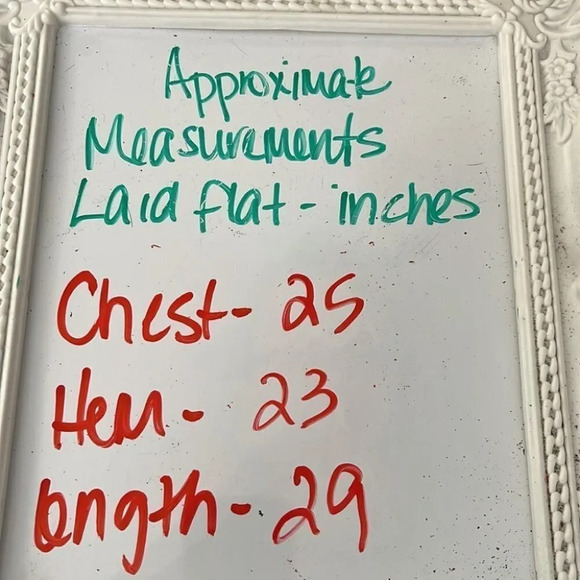 Approximate
Measurements
Laid flat - inches
Chest - 25
Hem - 23
length - 29